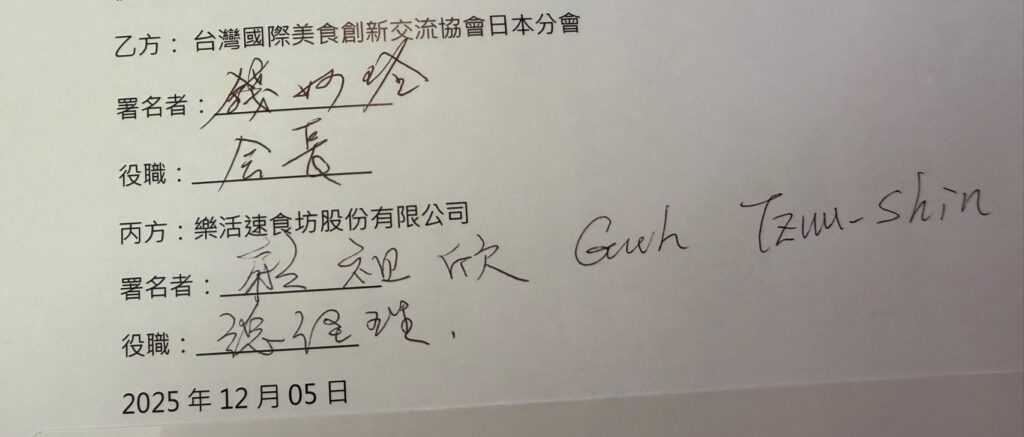 乙方：台灣國際美食創新交流協會日本分會
署名者：錢妙玲
役職：会長
丙方：樂活速食坊股份有限公司
署名者：祖欣 Guh Tzuu-Shin
役職：總經理.
2025 年 12 月 05 日